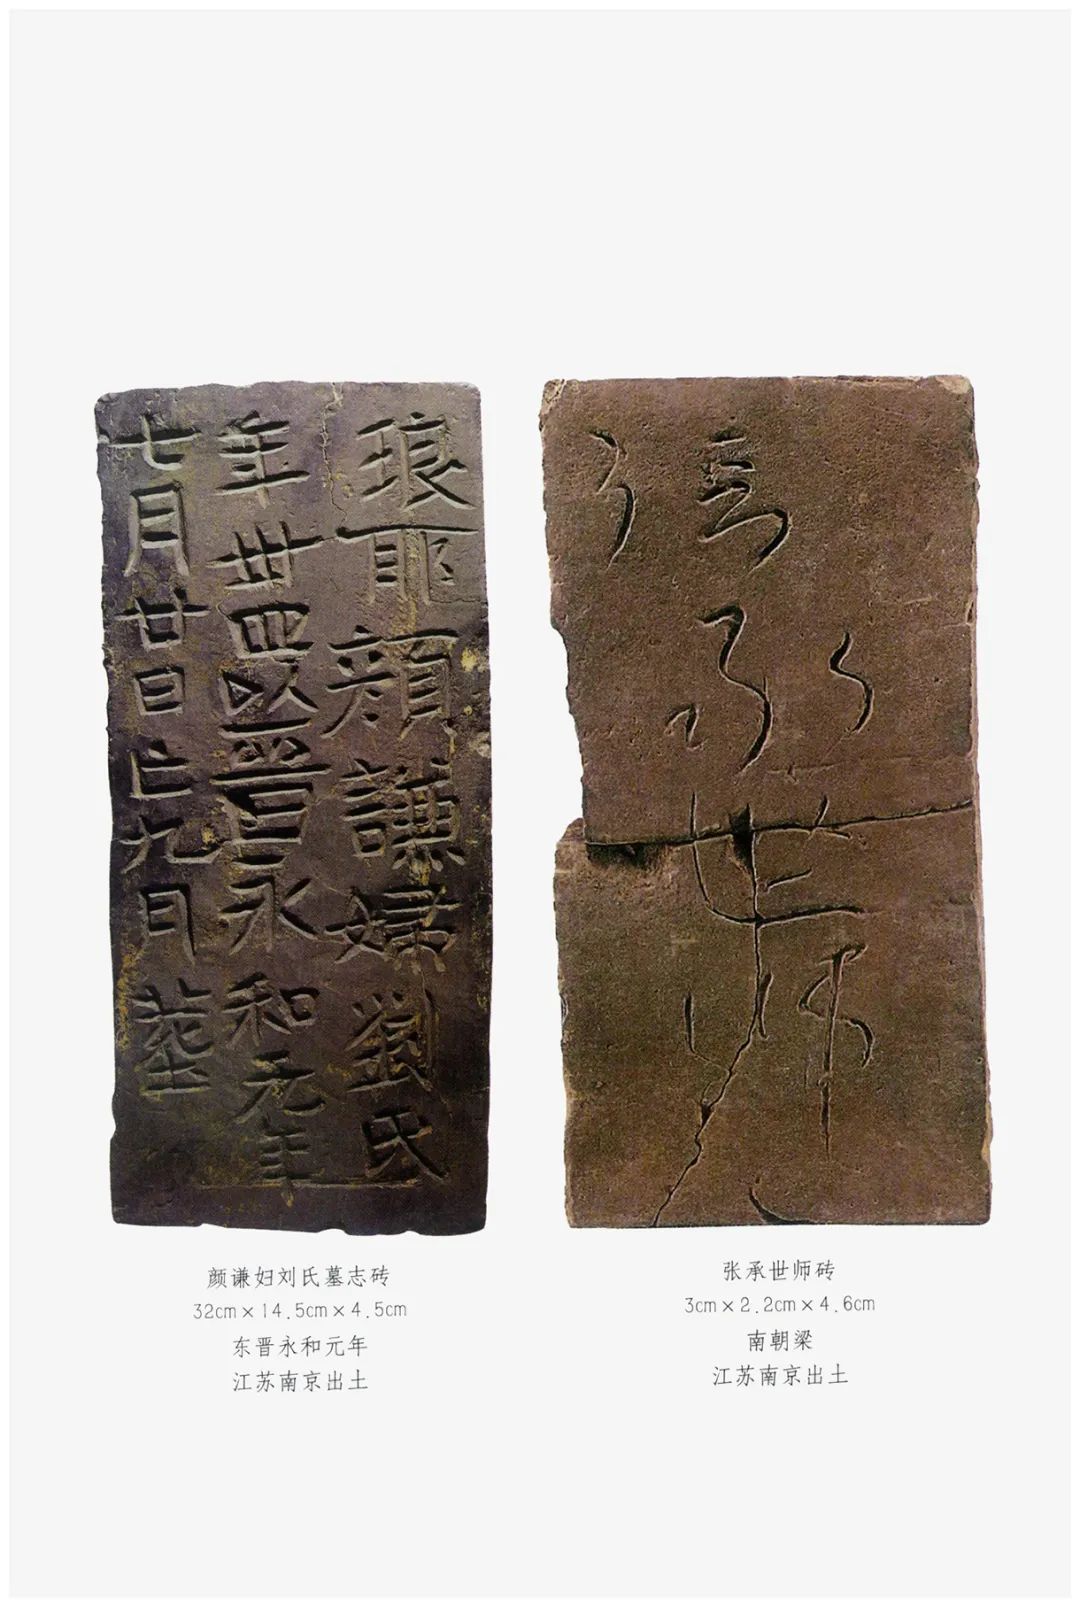 琅耶顔謙婦劉氏
年卅四以晉永和元年
七月廿日亡九月葬
張承世師
颜谦妇刘氏墓志砖
32cm×14.5cm×4.5cm
东晋永和元年
江苏南京出土
张承世师砖
3cm×2.2cm×4.6cm
南朝梁
江苏南京出土